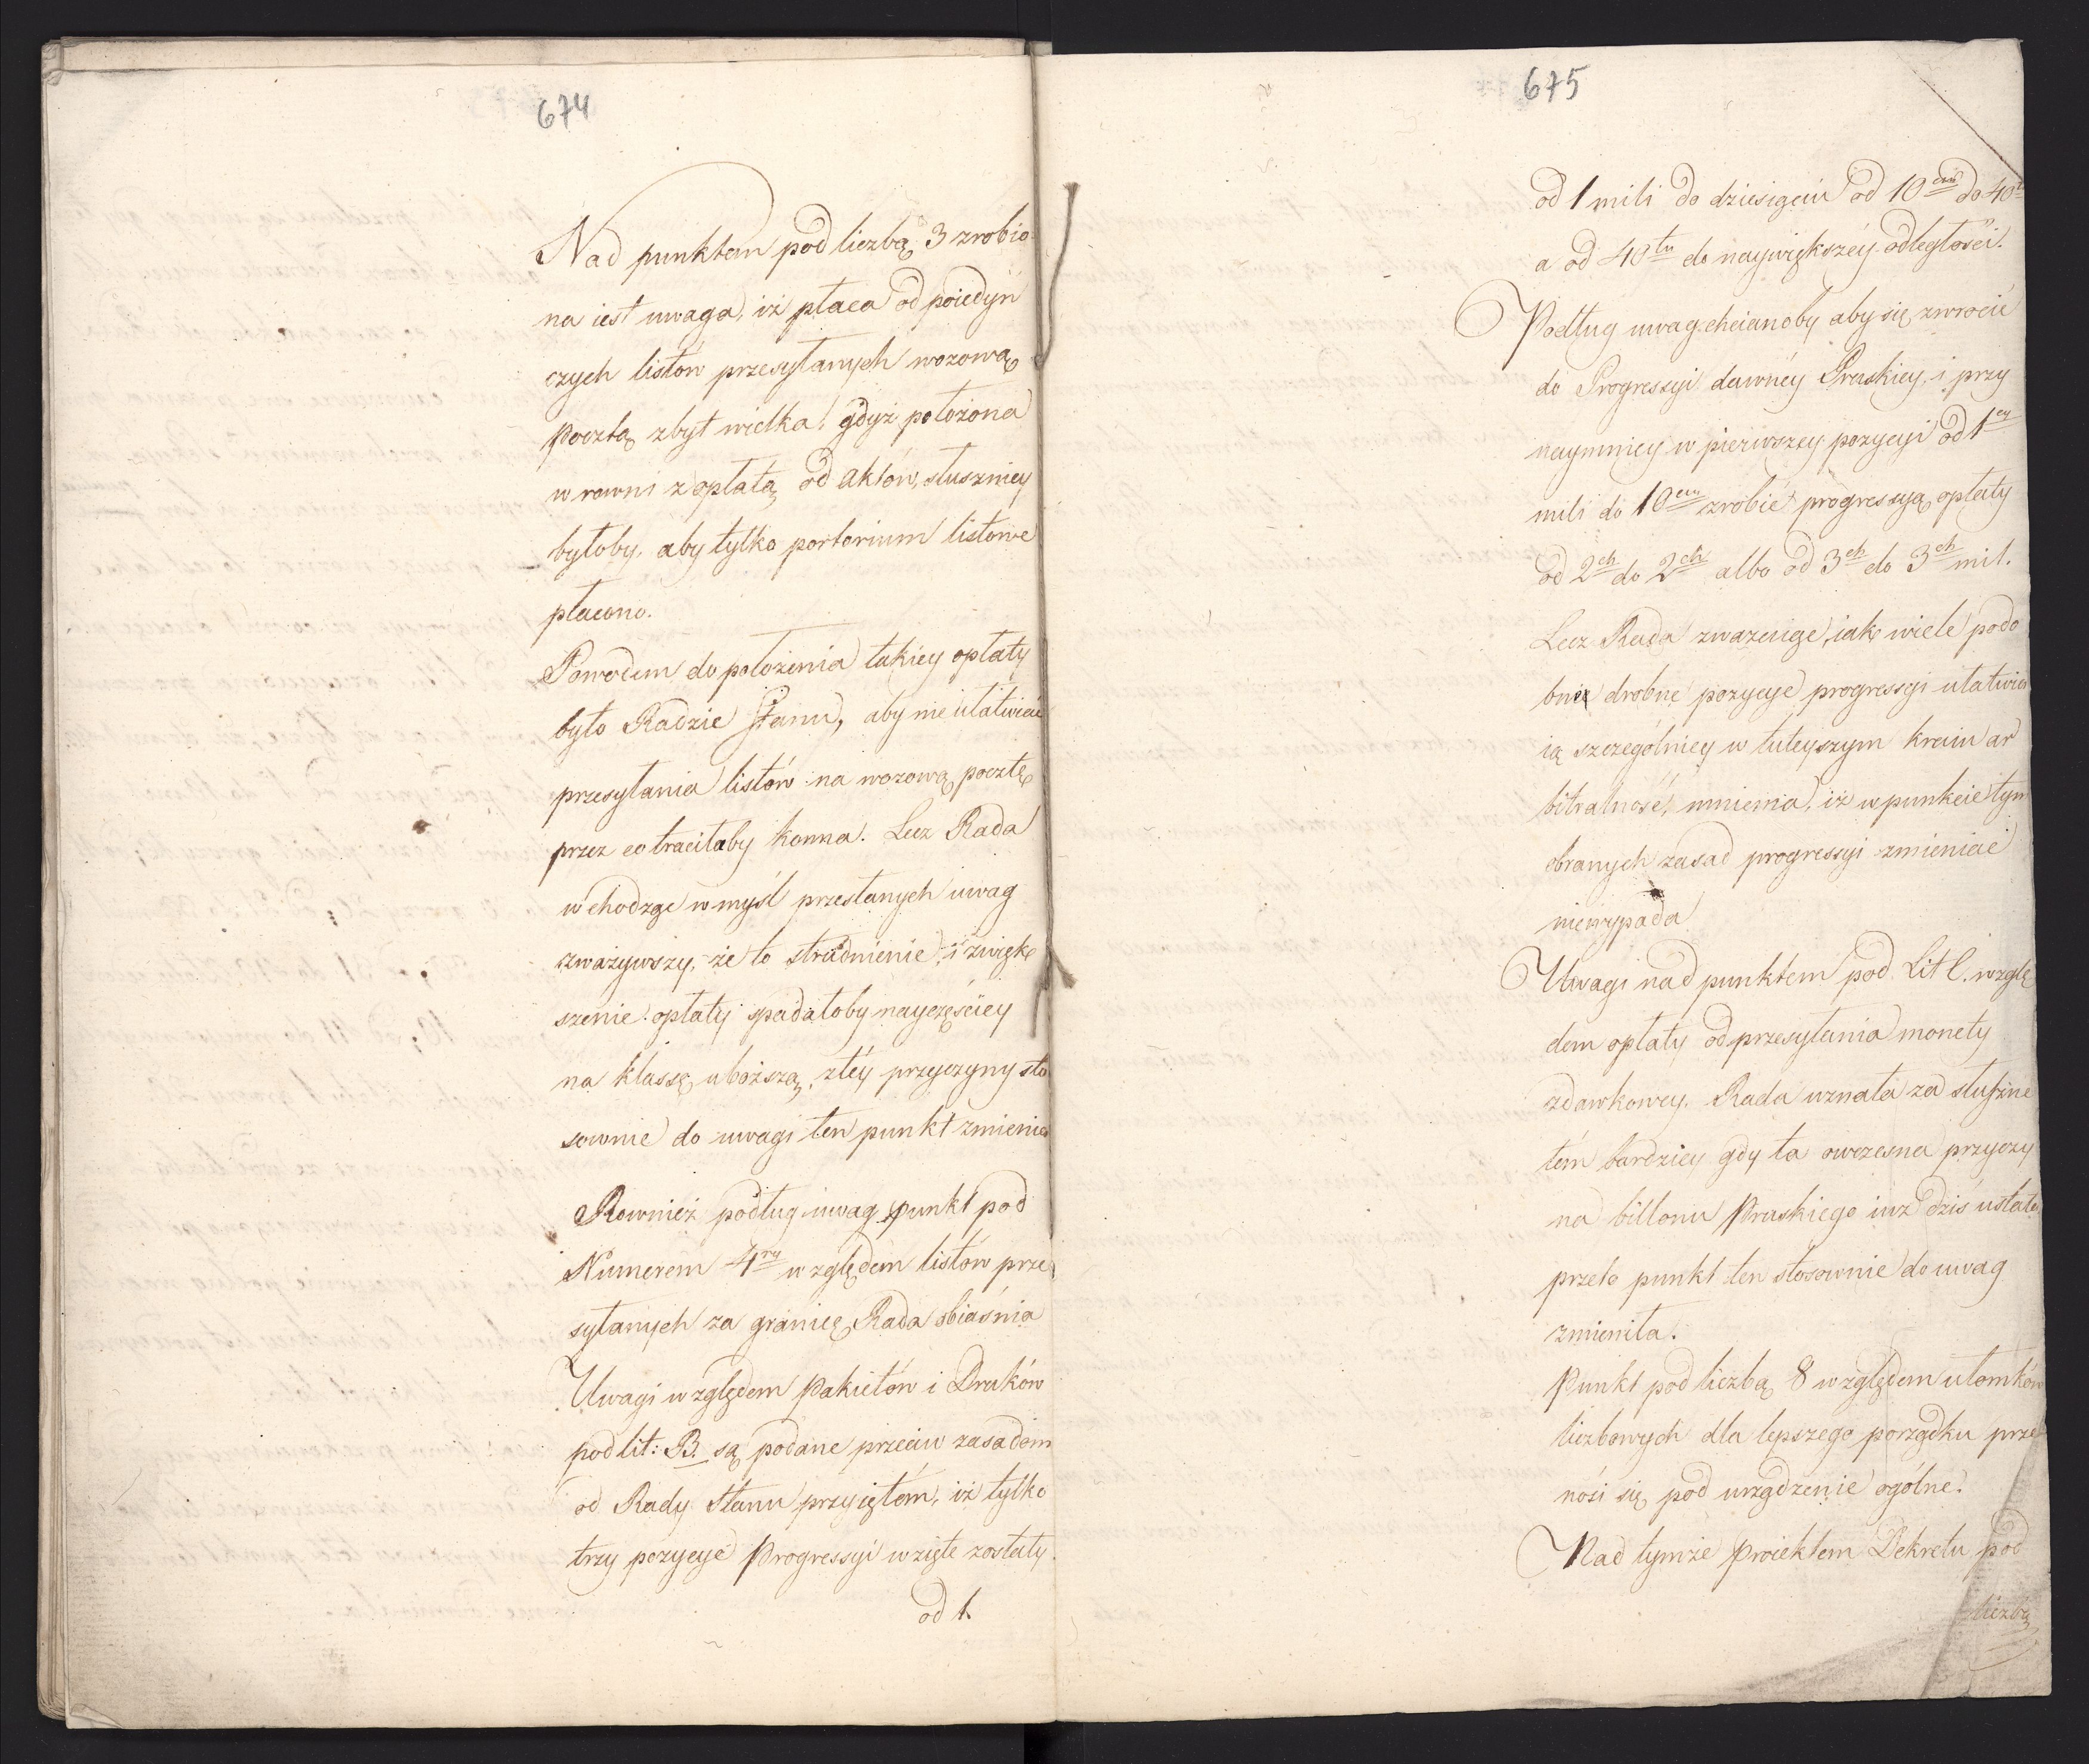 674
Nad punktem pod liczbą 3 zrobio
na iest uwaga, iż płaca od poiedyń
czych listów przesyłanych wozową
pocztą zbyt wielka, gdyż położona
w rowni z opłatą od aktów, słuszniey
byłoby, aby tylko portorium listowe
płacono.
Powodem do położenia takiey opłaty
było Radzie Stanu, aby nie ułatwiać
przesyłania listów na wozową pocztę
przez co traciłaby konna. Lecz Rada
wchodząc w myśl przesłanych uwag
zważywszy, że to utrudnienie i zwięk
szenie opłaty spadałoby nayczęściey
na klassę uboższą, z téy przyczyny sto
sownie do uwagi ten punkt zmienia
Rownież podług uwag punkt pod
Numerem 4ry względem listów prze
syłanych za granicę Rada obiaśnia
Uwagi względem Pakietów i Druków
pod lit: B. są podane przeciw zasadom
od Rady Stanu przyiętém, iż tylko
trzy pozycye Progressyi wzięte zostały.
od 1.
675
od 1 mili do dziesięciu od 10ciu do 40tu
a od 40tu do naywiększéy odległości.
Podług uwag chcianoby aby się zwrócić
do Progressyi dawnéy Pruskiey, i przy
naymniey w pierwszey pozycyi od 1ey
mili do 10ciu zrobić progressyą opłaty
od 2ch do 2ch albo od 3ch do 3ch mil.
Lecz Rada zważaiąc, iak wiele podo
bnie drobne pozycye progressyi ułatwia
ią szczególniey w tuteyszym kraiu ar
bitralność, mniema, iż w punkcie tym
obranych zasad progressyi zmieniać
niewypada
Uwagi nad punktem pod Lit C. wzglę
dem opłaty od przesyłania monety
zdawkowey, Rada uznała za słuszne
tém bardziey gdy ta owczesna przyczy
na billonu Pruskiego iuż dziś ustała
przeto punkt ten stosownie do uwag
zmieniła.
Punkt pod liczbą 8 względem ułomków
liczbowych dla lepszego porządku prze
nosi się pod urządzenie ogólne.
Nad tymże Proiektem Dekretu pod
liczbą